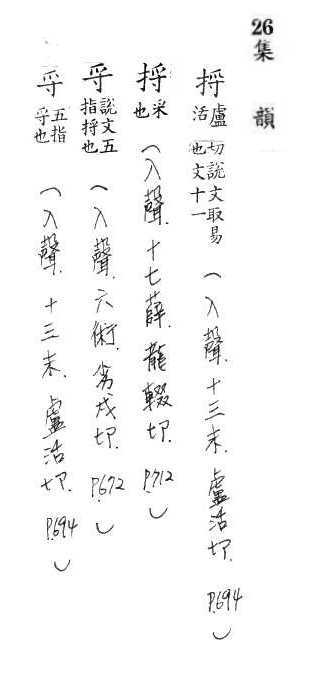 26
集韻
捋盧活切說文取易也文十一(入聲.十三末.盧活切.P.694)
捋采也(入聲.十七薛.龍輟切.P.712)
寽說文五指捋也(入聲.六術.劣戌切.P.672)
寽五指寽也(入聲.十三末.盧活切.P.694)